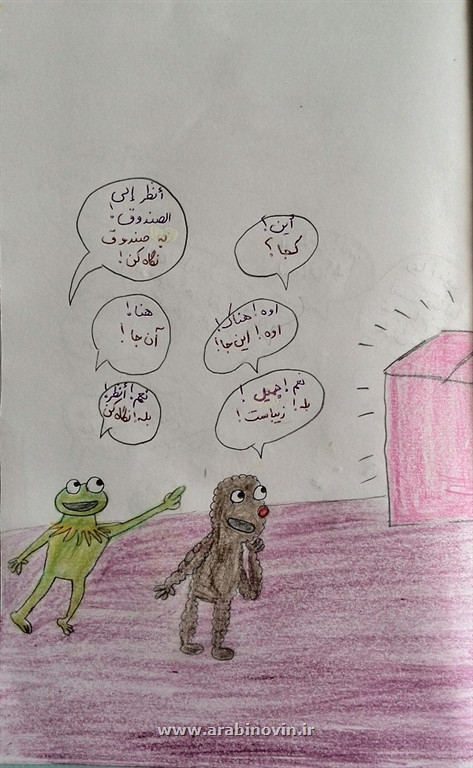 أنظر إلى
الصندوق!
به صندوق
نگاه کن!
أین!
کجا؟
هنا!
آن جا!
اوه! هناک!
اوه! این جا!
نعم! أُنظر!
بله! نگاه کن
نعم! جمیل!
بله! زیباست!
www.arabinovin.ir